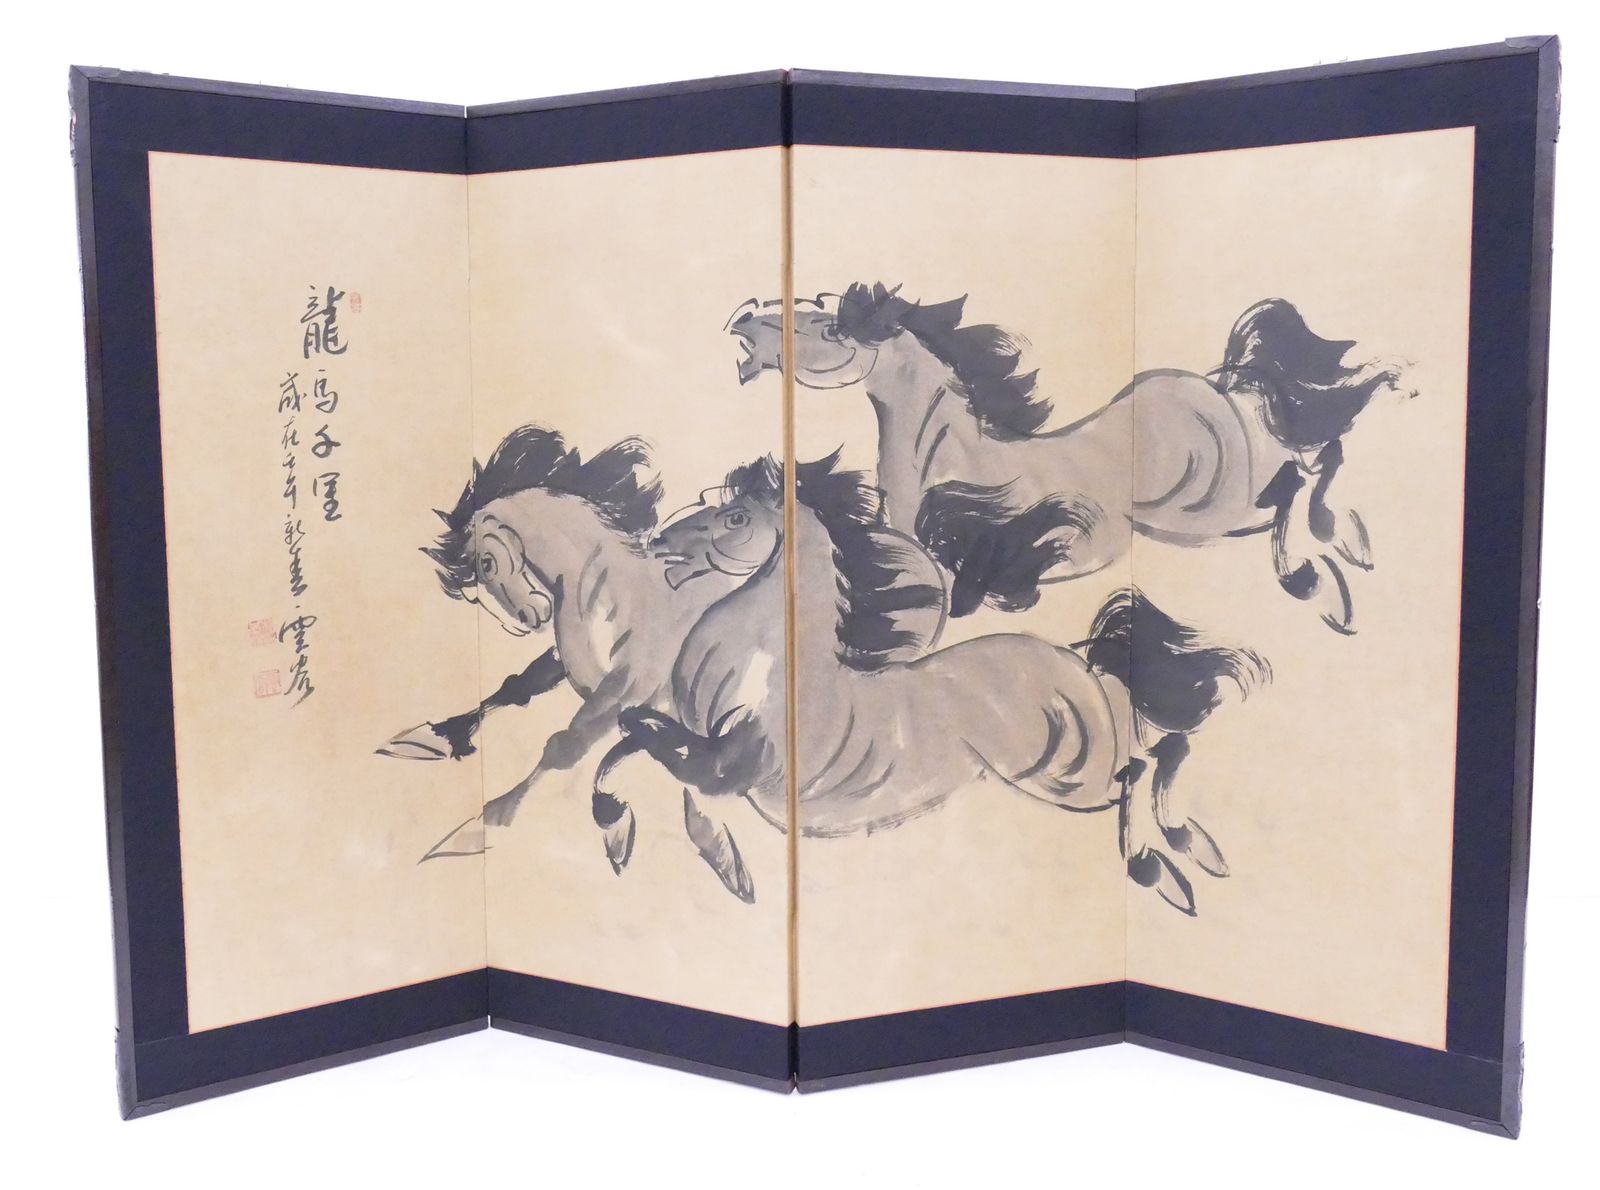 龍馬千里
歲在壬午新春 雲岩